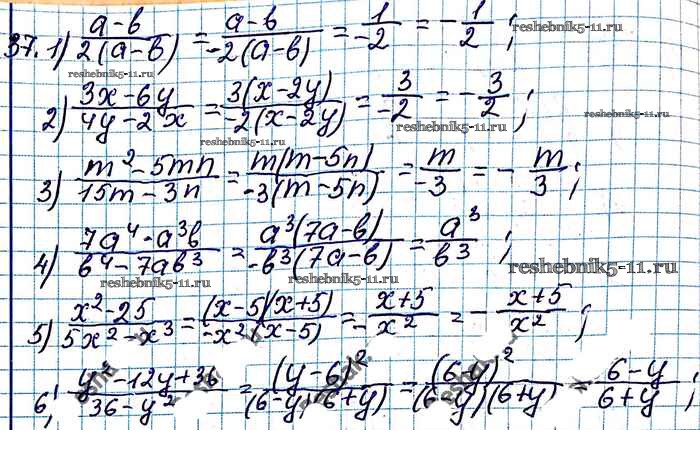 37. 1) (a-b)/(2(a-b)) = (a-b)/(-2(a-b)) = 1/(-2) = -1/2;
reshebnik5-11.ru
reshebnik5-11.ru reshebnik5-11.ru
2) (3x-6y)/(4y-2x) = (3(x-2y))/(-2(x-2y)) = 3/(-2) = -3/2;
reshebnik5-11.ru
reshebnik5-11.ru reshebnik5-11.ru
3) (m²-5mn)/(15m-3n) = (m(m-5n))/(-3(m-5n)) = m/(-3) = -m/3;
4) (7a⁴-a³b)/(b⁴-7ab³) = (a³(7a-b))/(-b³(7a-b)) = a³/b³;
reshebnik5-11.ru
reshebnik5-11.ru
5) (x²-25)/(5x²-x³) = ((x-5)(x+5))/(-x²(x-5)) = -(x+5)/x² = -(x+5)/x²;
6) (y²-12y+36)/(36-y²) = (y-6)²/((6-y)(6+y)) = (6-y)²/((6-y)(6+y)) = (6-y)/(6+y);